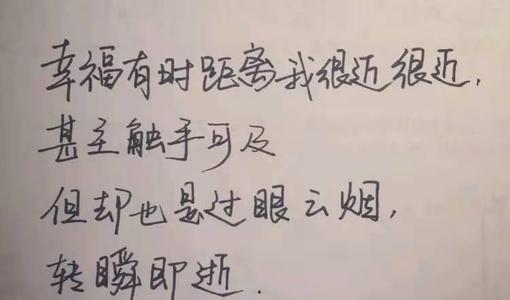 幸福有时距离我很近很近，
甚至触手可及
但却也是过眼云烟，
转瞬即逝．